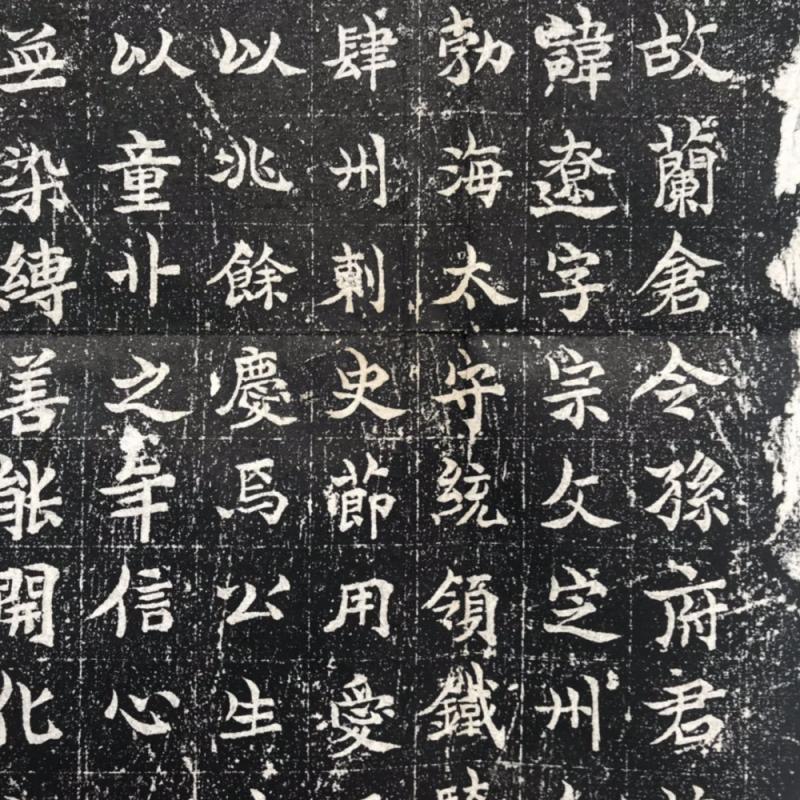 故蘭倉令孫府君
諱遼字宗文㝎州
勃海太守統領鐵
肆州刺史莭用受
以兆餘慶焉公生
以童丱之年信心
並染縛善能開化